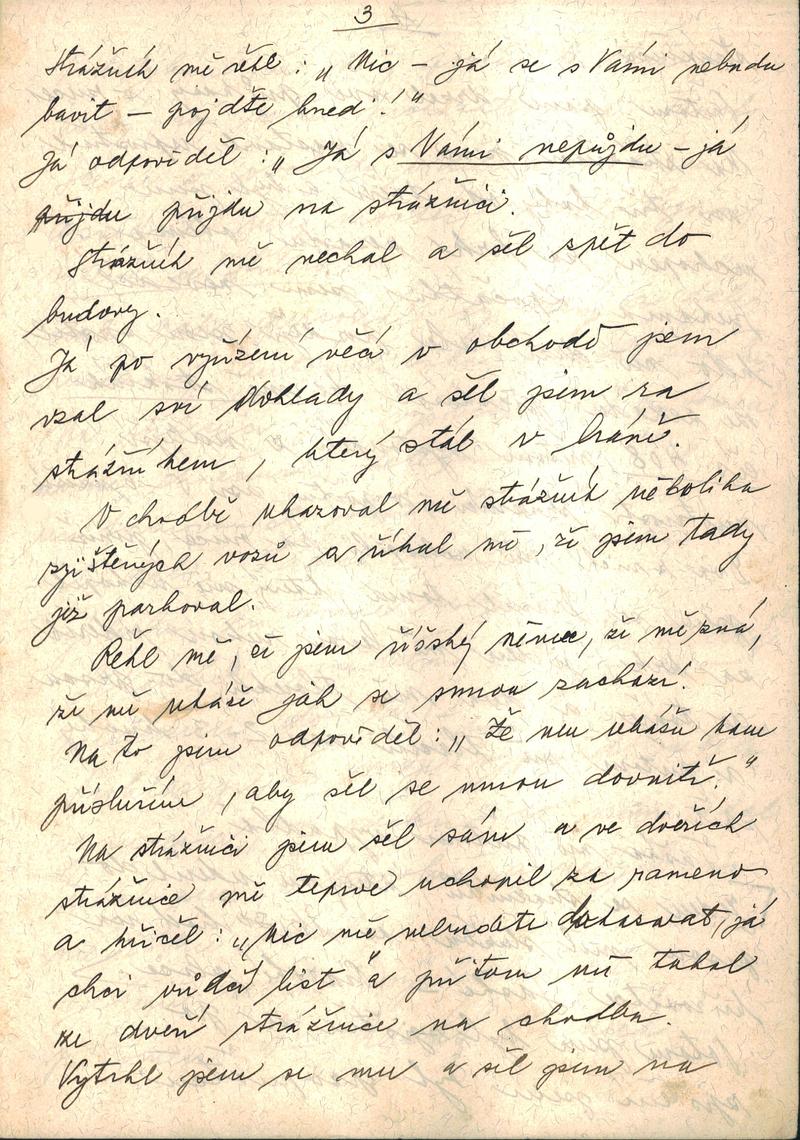 3
Strážník mě řekl: „Nic – já se s Vámi nebudu
bavit – pojďte hned!"
Já odpověděl: „Já s Vámi nepůjdu – já
půjdu přijdu na strážnici.
Strážník mě nechal a šel zpět do
budovy.
Já po vyřízení věcí v obchodě jsem
vzal své doklady a šel jsem za
strážníkem, který stál v bráně.
V chodbě ukazoval mě strážník několika
zjištěných vozů a říkal mě, že jsem tady
již parkoval.
Řekl mě, že jsem říšský němec, že mě zná,
že mě ukáže jak se smnou zachází.
Na to jsem odpověděl: „Že mu ukážu kam
přísluším, aby šel se mnou dovnitř."
Na strážnici jsem šel sám a ve dveřích
strážnice mě teprve uchopil za rameno
a křičel: „Nic mě nebudete dokazovat, já
chci vůdčí list" a přitom mě tahal
ze dveří strážnice na chodbu.
Vytrhl jsem se mu a šel jsem na